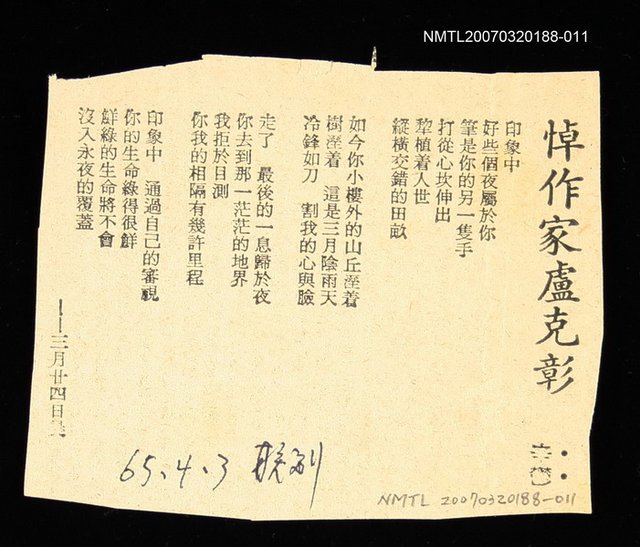 NMTL20070320188-011
悼作家盧克彰
印象中
好些個夜屬於你
筆是你的另一隻手
打從心坎伸出
犂植着人世
縱橫交錯的田畝
如今你小樓外的山丘溼着
樹溼着　這是三月陰雨天
冷鋒如刀　割我的心與臉
走了　最後的一息歸於夜
你去到那一茫茫的地界
我拒於目測
你我的相隔有幾許里程
印象中　通過自己的審視
你的生命綠得很鮮
鮮綠的生命將不會
沒入永夜的覆蓋
——三月廿四日
65.4.3 聯副
NMTL 20070320188-011